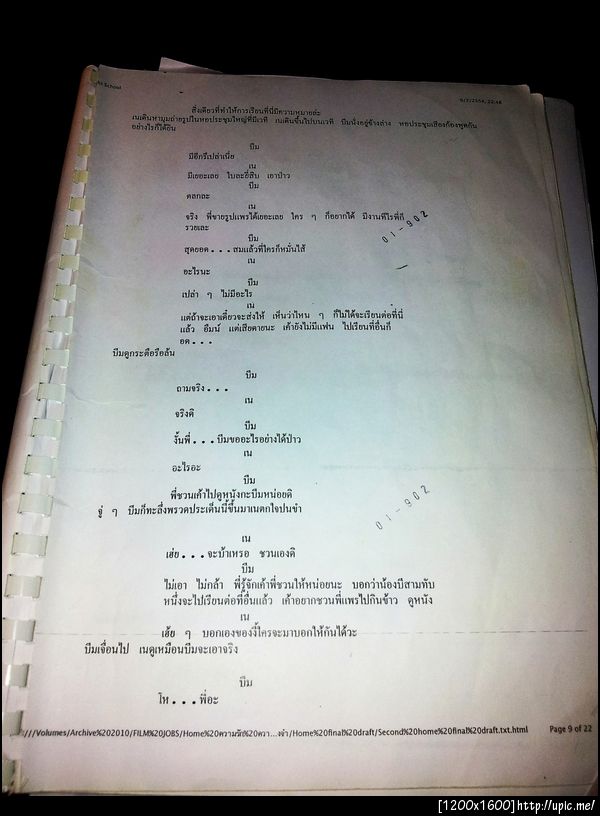 At School
6/2/2554, 22:46
สิ่งเดียวที่ทำให้การเรียนที่นี่มีความหมายล่ะ
เนเดินหามุมถ่ายรูปในหอประชุมใหญ่ที่มีเวที เนเดินขึ้นไปบนเวที บีมนั่งอยู่ข้างล่าง หอประชุมเสียงก้องพูดกัน
อย่างไรก็ได้ยิน
บีม
มีอีกรึเปล่าเนี่ย
เน
มีเยอะเลย ใบละยี่สิบ เอาป่าว
บีม
ตลกละ
เน
จริง พี่ขายรูปแพรได้เยอะเลย ใคร ๆ ก็อยากได้ มีงานทีไรพี่ก็
รวยเละ
01-902
บีม
สุดยอด...สมแล้วที่ใครก็หมั่นไส้
เน
อะไรนะ
บีม
เปล่า ๆ ไม่มีอะไร
เน
แต่ถ้าจะเอาเดี๋ยวจะส่งให้ เห็นว่าไหน ๆ ก็ไม่ได้จะเรียนต่อที่นี่
แล้ว อืมน์ แต่เสียดายนะ เค้ายังไม่มีแฟน ไปเรียนที่อื่นก็
อด...
บีมดูกระตือรือล้น
บีม
ถามจริง...
เน
จริงดิ
บีม
งั้นพี่...บีมขออะไรอย่างได้ป่าว
เน
อะไรอะ
บีม
พี่ชวนเค้าไปดูหนังกะบีมหน่อยดิ
01-902
จู่ ๆ บีมก็ทะลึ่งพรวดประเด็นนี้ขึ้นมาเนตกใจปนขำ
เน
เฮ่ย...จะบ้าเหรอ ชวนเองดิ
บีม
ไม่เอา ไม่กล้า พี่รู้จักเค้าพี่ชวนให้หน่อยนะ บอกว่าน้องบีสามทับ
หนึ่งจะไปเรียนต่อที่อื่นแล้ว เค้าอยากชวนพี่แพรไปกินข้าว ดูหนัง
เน
เฮ้ย ๆ บอกเองของงี้ใครจะมาบอกให้กันได้วะ
บีมเจื่อนไป เนดูเหมือนบีมจะเอาจริง
บีม
โห...พี่อะ
///Volumes/Archive%202010/FILM%20JOBS/Home%20ความรัก%20ควา...งจำ/Home%20final%20draft/Second%20home%20final%20draft.txt.html
Page 9 of 22
[1200x1600]http://upic.me/